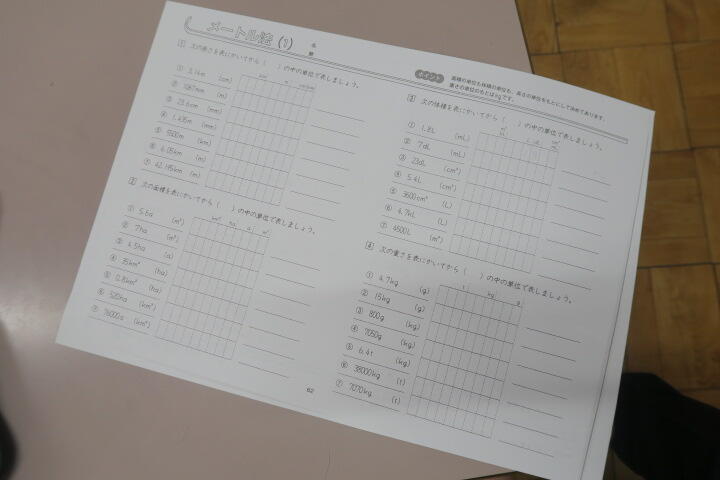 メートル法 (1)
名
前
ポイント
面積の単位も体積の単位も、長さの単位をもとにして決めてあります。
重さの単位のもとはkgです。
1 次の長さを表にかいてから( )の中の単位で表しましょう。
km m cm mm
① 3.14m (cm)
② 7087mm (m)
③ 23.6cm (mm)
④ 1.435m (mm)
⑤ 5500m (km)
⑥ 6.05km (m)
⑦ 42.195km (m)
2 次の面積を表にかいてから( )の中の単位で表しましょう。
km² ha a m²
① 5.6a (m²)
② 7ha (m²)
③ 4.5ha (a)
④ 35km² (ha)
⑤ 0.8km² (ha)
⑥ 520ha (km²)
⑦ 76000a (km²)
3 次の体積を表にかいてから( )の中の単位で表しましょう。
① 1.8L (mL)
② 7dL (mL)
③ 23dL (cm³)
④ 5.4L (cm³)
⑤ 3600cm³ (L)
⑥ 4.7kL (L)
⑦ 4500L (m³)
4 次の重さを表にかいてから( )の中の単位で表しましょう。
t kg g
① 4.7kg (g)
② 15kg (g)
③ 800g (kg)
④ 7050g (kg)
⑤ 6.4t (kg)
⑥ 38000kg (t)
⑦ 7070kg (t)
62